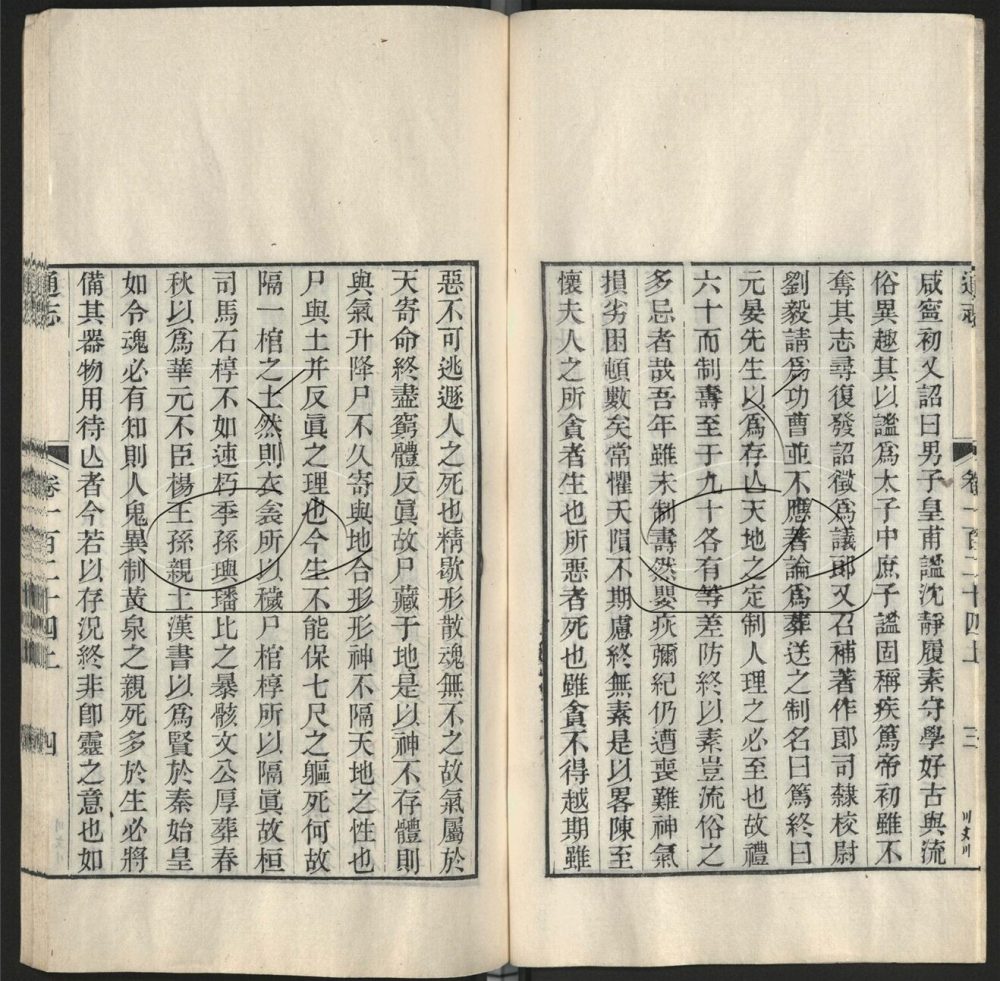 通志
卷一百二十四上
三
咸寧初又詔曰男子皇甫謐沈靜履素守學好古與流
俗異趣其以謐爲太子中庶子謐固稱疾篤帝初雖不
奪其志尋復發詔徵爲議郞又召補著作郞司隸校尉
劉毅請爲功曹並不應著論爲葬送之制名曰篤終曰
元晏先生以爲存亾天地之定制人理之必至也故禮
六十而制壽至于九十各有等差防終以素豈流俗之
多忌者哉吾年雖未制壽然嬰疢彌紀仍遭喪難神氣
損劣困頓數矣常懼天隕不期慮終無素是以畧陳至
懷夫人之所貪者生也所惡者死也雖貪不得越期雖
惡不可逃遯人之死也精歇形散魂無不之故氣屬於
天寄命終盡窮體反眞故尸藏于地是以神不存體則
與氣升降尸不久寄與地合形形神不隔天地之性也
尸與土并反眞之理也今生不能保七尺之軀死何故
隔一棺之土然則衣衾所以穢尸棺椁所以隔眞故桓
司馬石椁不如速朽季孫璵璠比之暴骸文公厚葬春
秋以爲華元不臣楊王孫親土漢書以爲賢於秦始皇
如令魂必有知則人鬼異制黃泉之親死多於生必將
備其器物用待亾者今若以存況終非卽靈之意也如
通志
卷一百二十四上
四